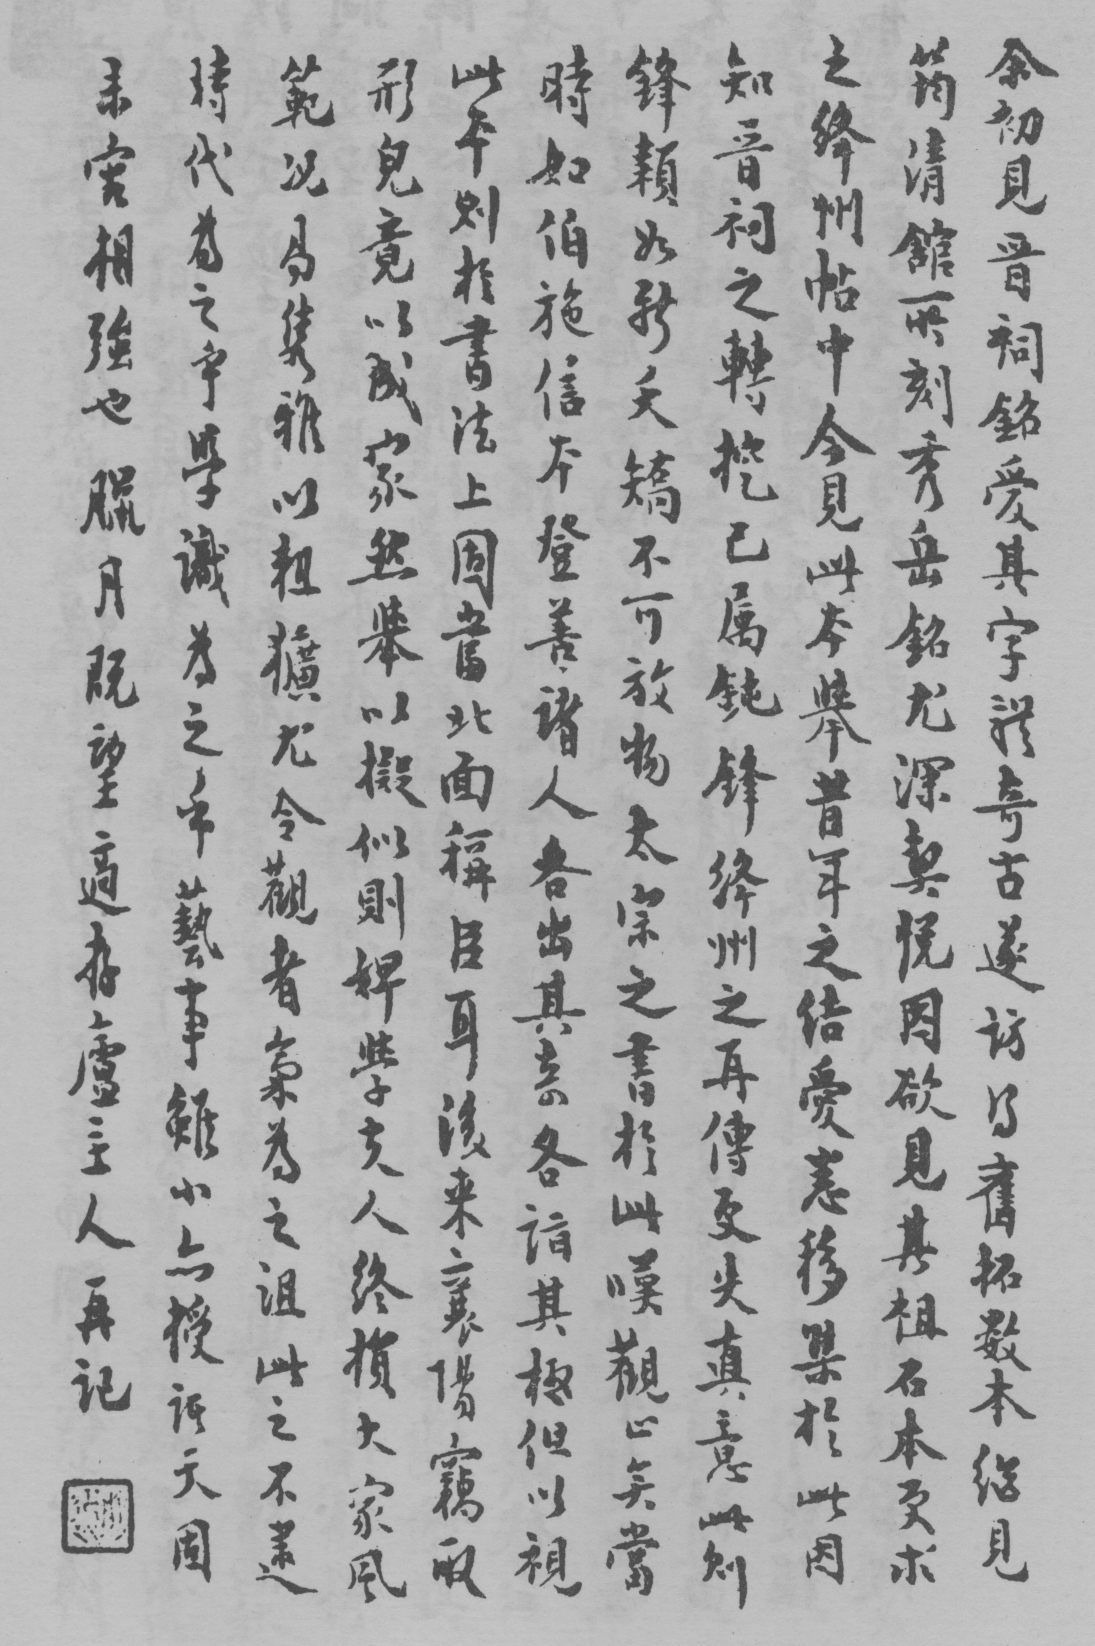 余初見晉祠銘愛其字體奇古遂訪得舊拓數本繼見
筠清館所刻秀岳銘尤深契悅因欲見其祖石本更求
之絳州帖中今見此本舉昔年之結愛悉移集於此因
知晉祠之轉掟已属鈍鋒絳州之再傳更失真意此則
鋒穎如新夭矯不可放物太宗之書於此嘆觀止矣當
時如伯施信本登善諸人各出其奇各詣其極但以視
此本則於書法上固當北面稱臣耳後來襄陽竊取
形皃竟以成家然舉以擬似則婢學夫人終損大家風
範况易雋雅以粗獷尤令觀者氣為之沮此之不逮
時代為之乎學識為之乎藝事雖小亦授諸天固
未容相強也臘月既望適存廬主人再記